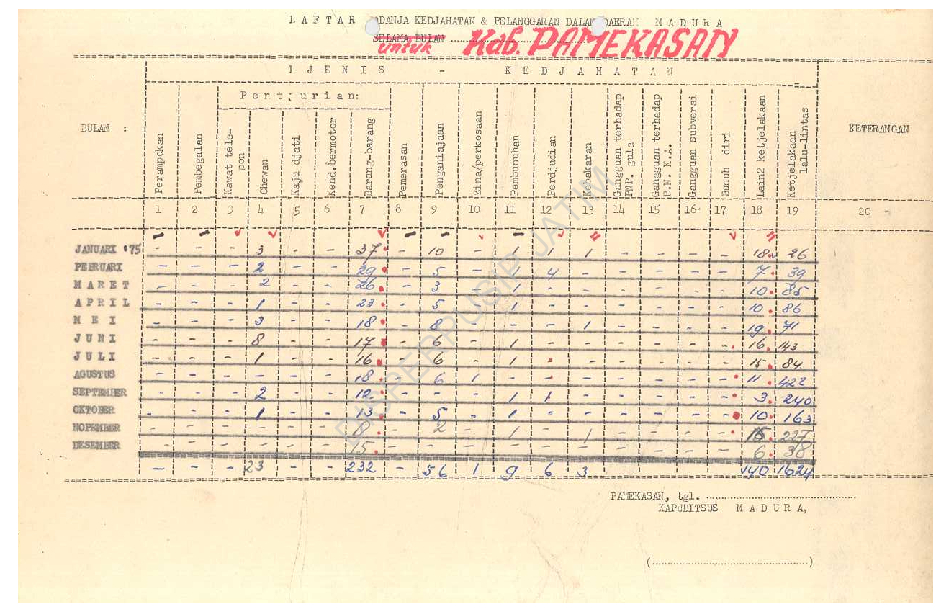 DAFTAR ADANJA KEDJAHATAN & PELANGGARAN DALAM DAERAH MADURA
SELAMA BULAN ........................
untuk Kab. PAMEKASAN
DJENIS - KEDJAHATAN
Pentjurian:
BULAN :
Perampokan
Pembegalan
Kawat tele-
pon
Chewan
Kaju djati
Kend.bermotor
Barang-barang
Pemerasan
Penganiajaan
Zina/perkosaan
Pembunuhan
Perdjudian
Kebakaran
Gangguan terhadap
PNP. gula
Gangguan terhadap
P.N. K.A.
Gangguan subversi
Bunuh diri
Lain2 ketjelakaan
Ketjelakaan
lalu-lintas
KETERANGAN
1 2 3 4 5 6 7 8 9 10 11 12 13 14 15 16 17 18 19 20
JANUARI '75 - - - 3 - - 37 - 10 - 1 1 1 - - - - 18 26
PEBRUARI - - - 2 - - 29 - 5 - - 4 - - - - - 7 39
MARET - - - 2 - - 26 - 3 - 1 - - - - - - 10 85
APRIL - - - 1 - - 23 - 5 - 1 - - - - - - 10 86
MEI - - - 3 - - 18 - 8 - - - 1 - - - - 19 71
JUNI - - - 8 - - 17 - 6 - 1 - - - - - - 16 143
JULI - - - 1 - - 16 - 6 - 1 - - - - - - 15 84
AGUSTUS - - - - - - 18 - 6 1 - - - - - - - 11 422
SEPTEMBER - - - 2 - - 12 - - - 1 1 - - - - - 3 240
OKTOBER - - - 1 - - 13 - 5 - 1 - - - - - - 10 163
NOPEMBER - - - - - - 8 - 2 - 1 - 1 - - - - 15 227
DESEMBER - - - - - - 15 - - - - - - - - - - 6 38
- - - 23 - - 232 - 56 1 9 6 3 140 1624
PAMEKASAN, tgl. ........................
KAPOLITSUS MADURA,
(........................)